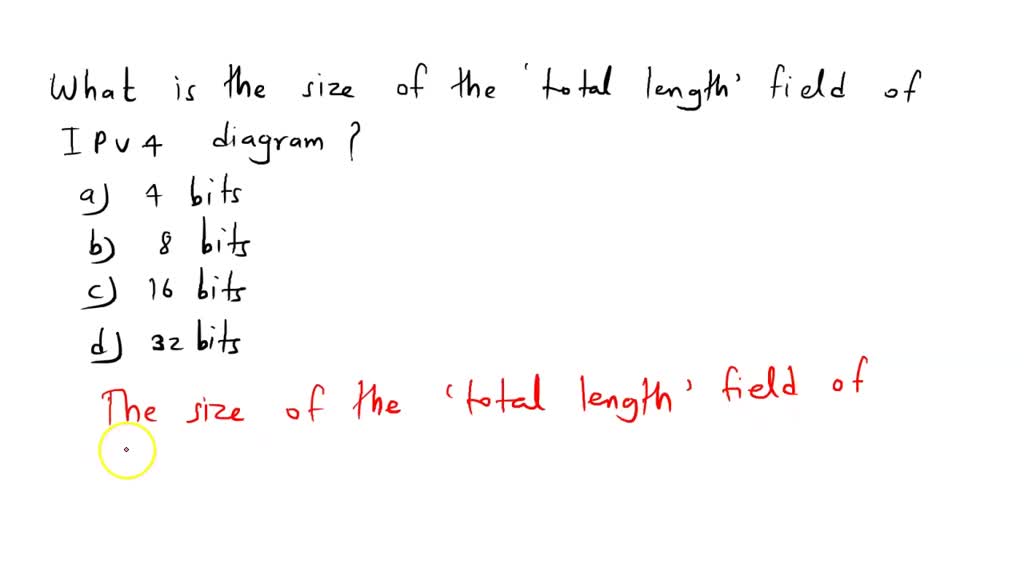 What is the size of the 'total length' field of
IPv4 diagram?
a) 4 bits
b) 8 bits
c) 16 bits
d) 32 bits
The size of the 'total length' field of